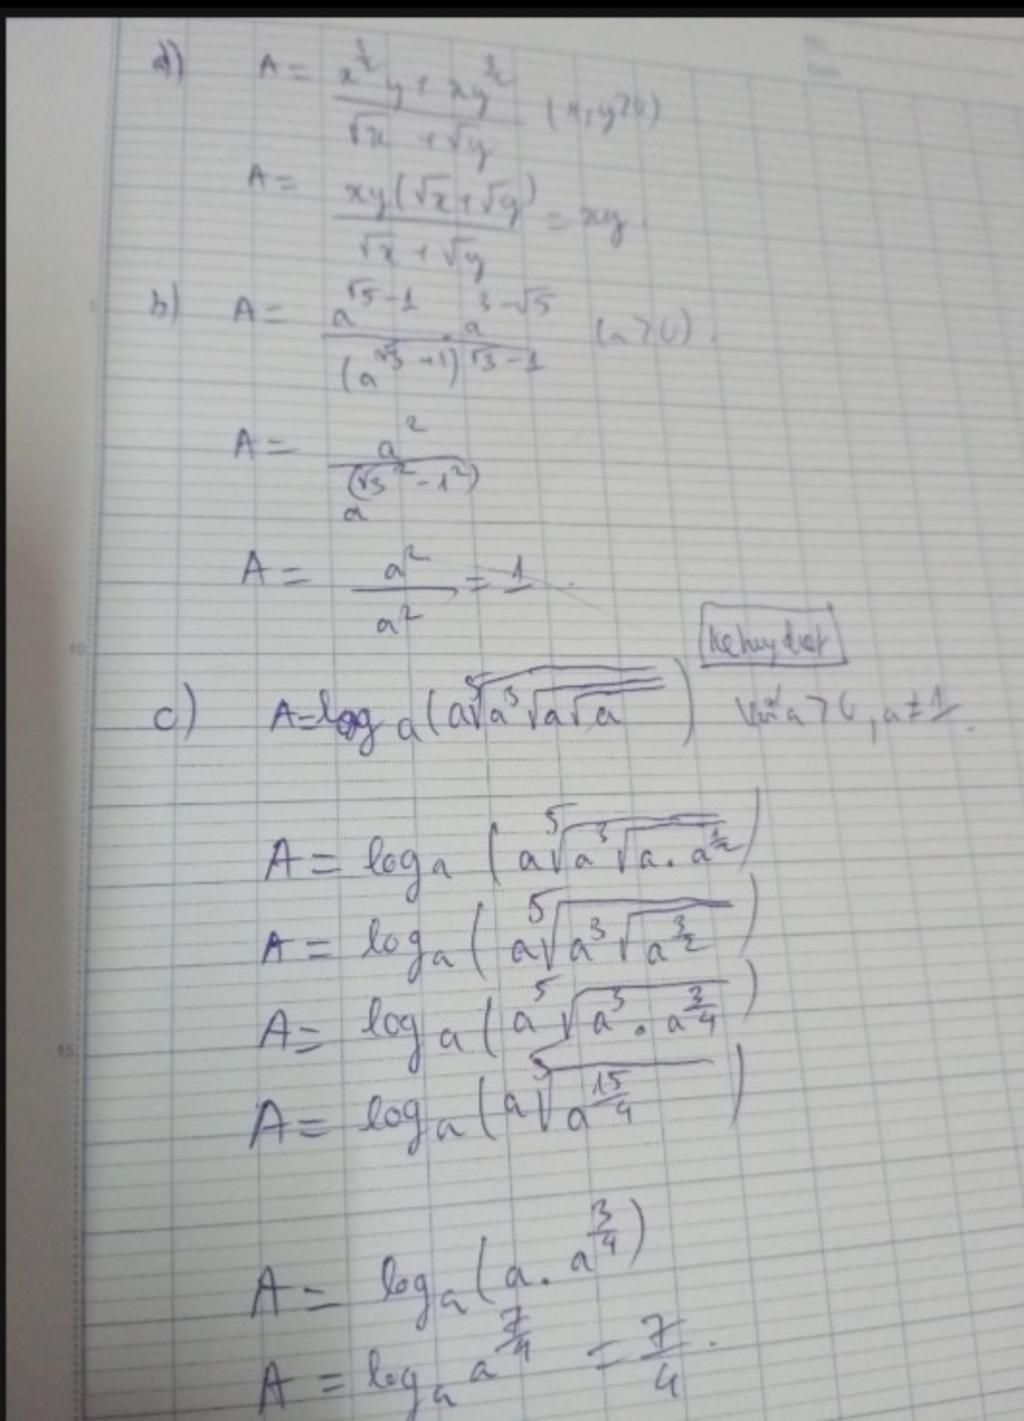 d) A = \frac{x^{\frac{3}{2}}y + xy^{\frac{3}{2}}}{\sqrt{x} + \sqrt{y}} (x, y > 0)
A = \frac{xy(\sqrt{x} + \sqrt{y})}{\sqrt{x} + \sqrt{y}} = xy.
b) A = \frac{a^{\sqrt{5}-1} \cdot a^{3-\sqrt{5}}}{(a^{\sqrt{3}+1})^{\sqrt{3}-1}} (a > 0).
A = \frac{a^2}{a^{(\sqrt{3}^2 - 1^2)}}
A = \frac{a^2}{a^2} = 1.
c) A = log_a (a \sqrt[5]{a^3 \sqrt{a\sqrt{a}}}) a > 0, a ≠ 1.
A = log_a (a \sqrt[5]{a^3 \sqrt{a . a^{\frac{1}{2}}}})
A = log_a (a \sqrt[5]{a^3 \sqrt{a^{\frac{3}{2}}}})
A = log_a (a \sqrt[5]{a^3 . a^{\frac{3}{4}}})
A = log_a (a \sqrt[5]{a^{\frac{15}{4}}})
A = log_a (a . a^{\frac{3}{4}})
A = log_a a^{\frac{7}{4}} = \frac{7}{4}.